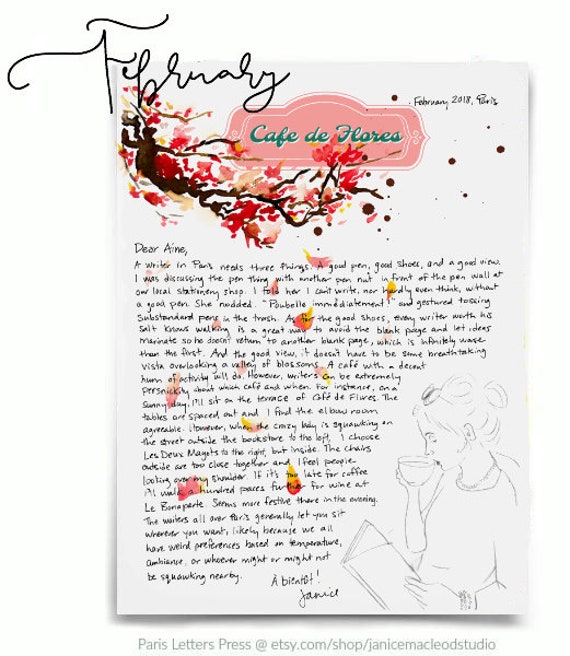 February
February, 2018, Paris
Cafe de Flores
Dear Aine,
A writer in Paris needs three things. A good pen, good shoes, and a good view.
I was discussing the pen thing with another pen nut in front of the pen wall at
our local stationery shop. I told her I can't write, nor hardly even think, without
a good pen. She nodded. "Poubelle immédiatement!" and gestured tossing
substandard pens in the trash. As for the good shoes, every writer worth his
salt knows walking is a great way to avoid the blank page and let ideas
marinate so he doesn't return to another blank page, which is infinitely worse
than the first. And the good view, it doesn't have to be some breathtaking
vista overlooking a valley of blossoms. A café with a decent
hum of activity will do. However, writers can be extremely
persnickity about which café and when. For instance, on a
sunny day, I'll sit on the terrace of Café de Flores. The
tables are spaced out and I find the elbow room
agreeable. However, when the crazy lady is squawking on
the street outside the bookstore to the left, I choose
Les Deux Magots to the right, but inside. The chairs
outside are too close together and I feel people
looking over my shoulder. If it's too late for coffee
I'll walk a hundred paces further for wine at
Le Bonaparte. Seems more festive there in the evening.
The writers all over Paris generally let you sit
wherever you want, likely because we all
have weird preferences based on temperature,
ambiance, or whoever might or might not
be squawking nearby.
À bientôt!
Janice
Paris Letters Press @ etsy.com/shop/janicemacleodstudio